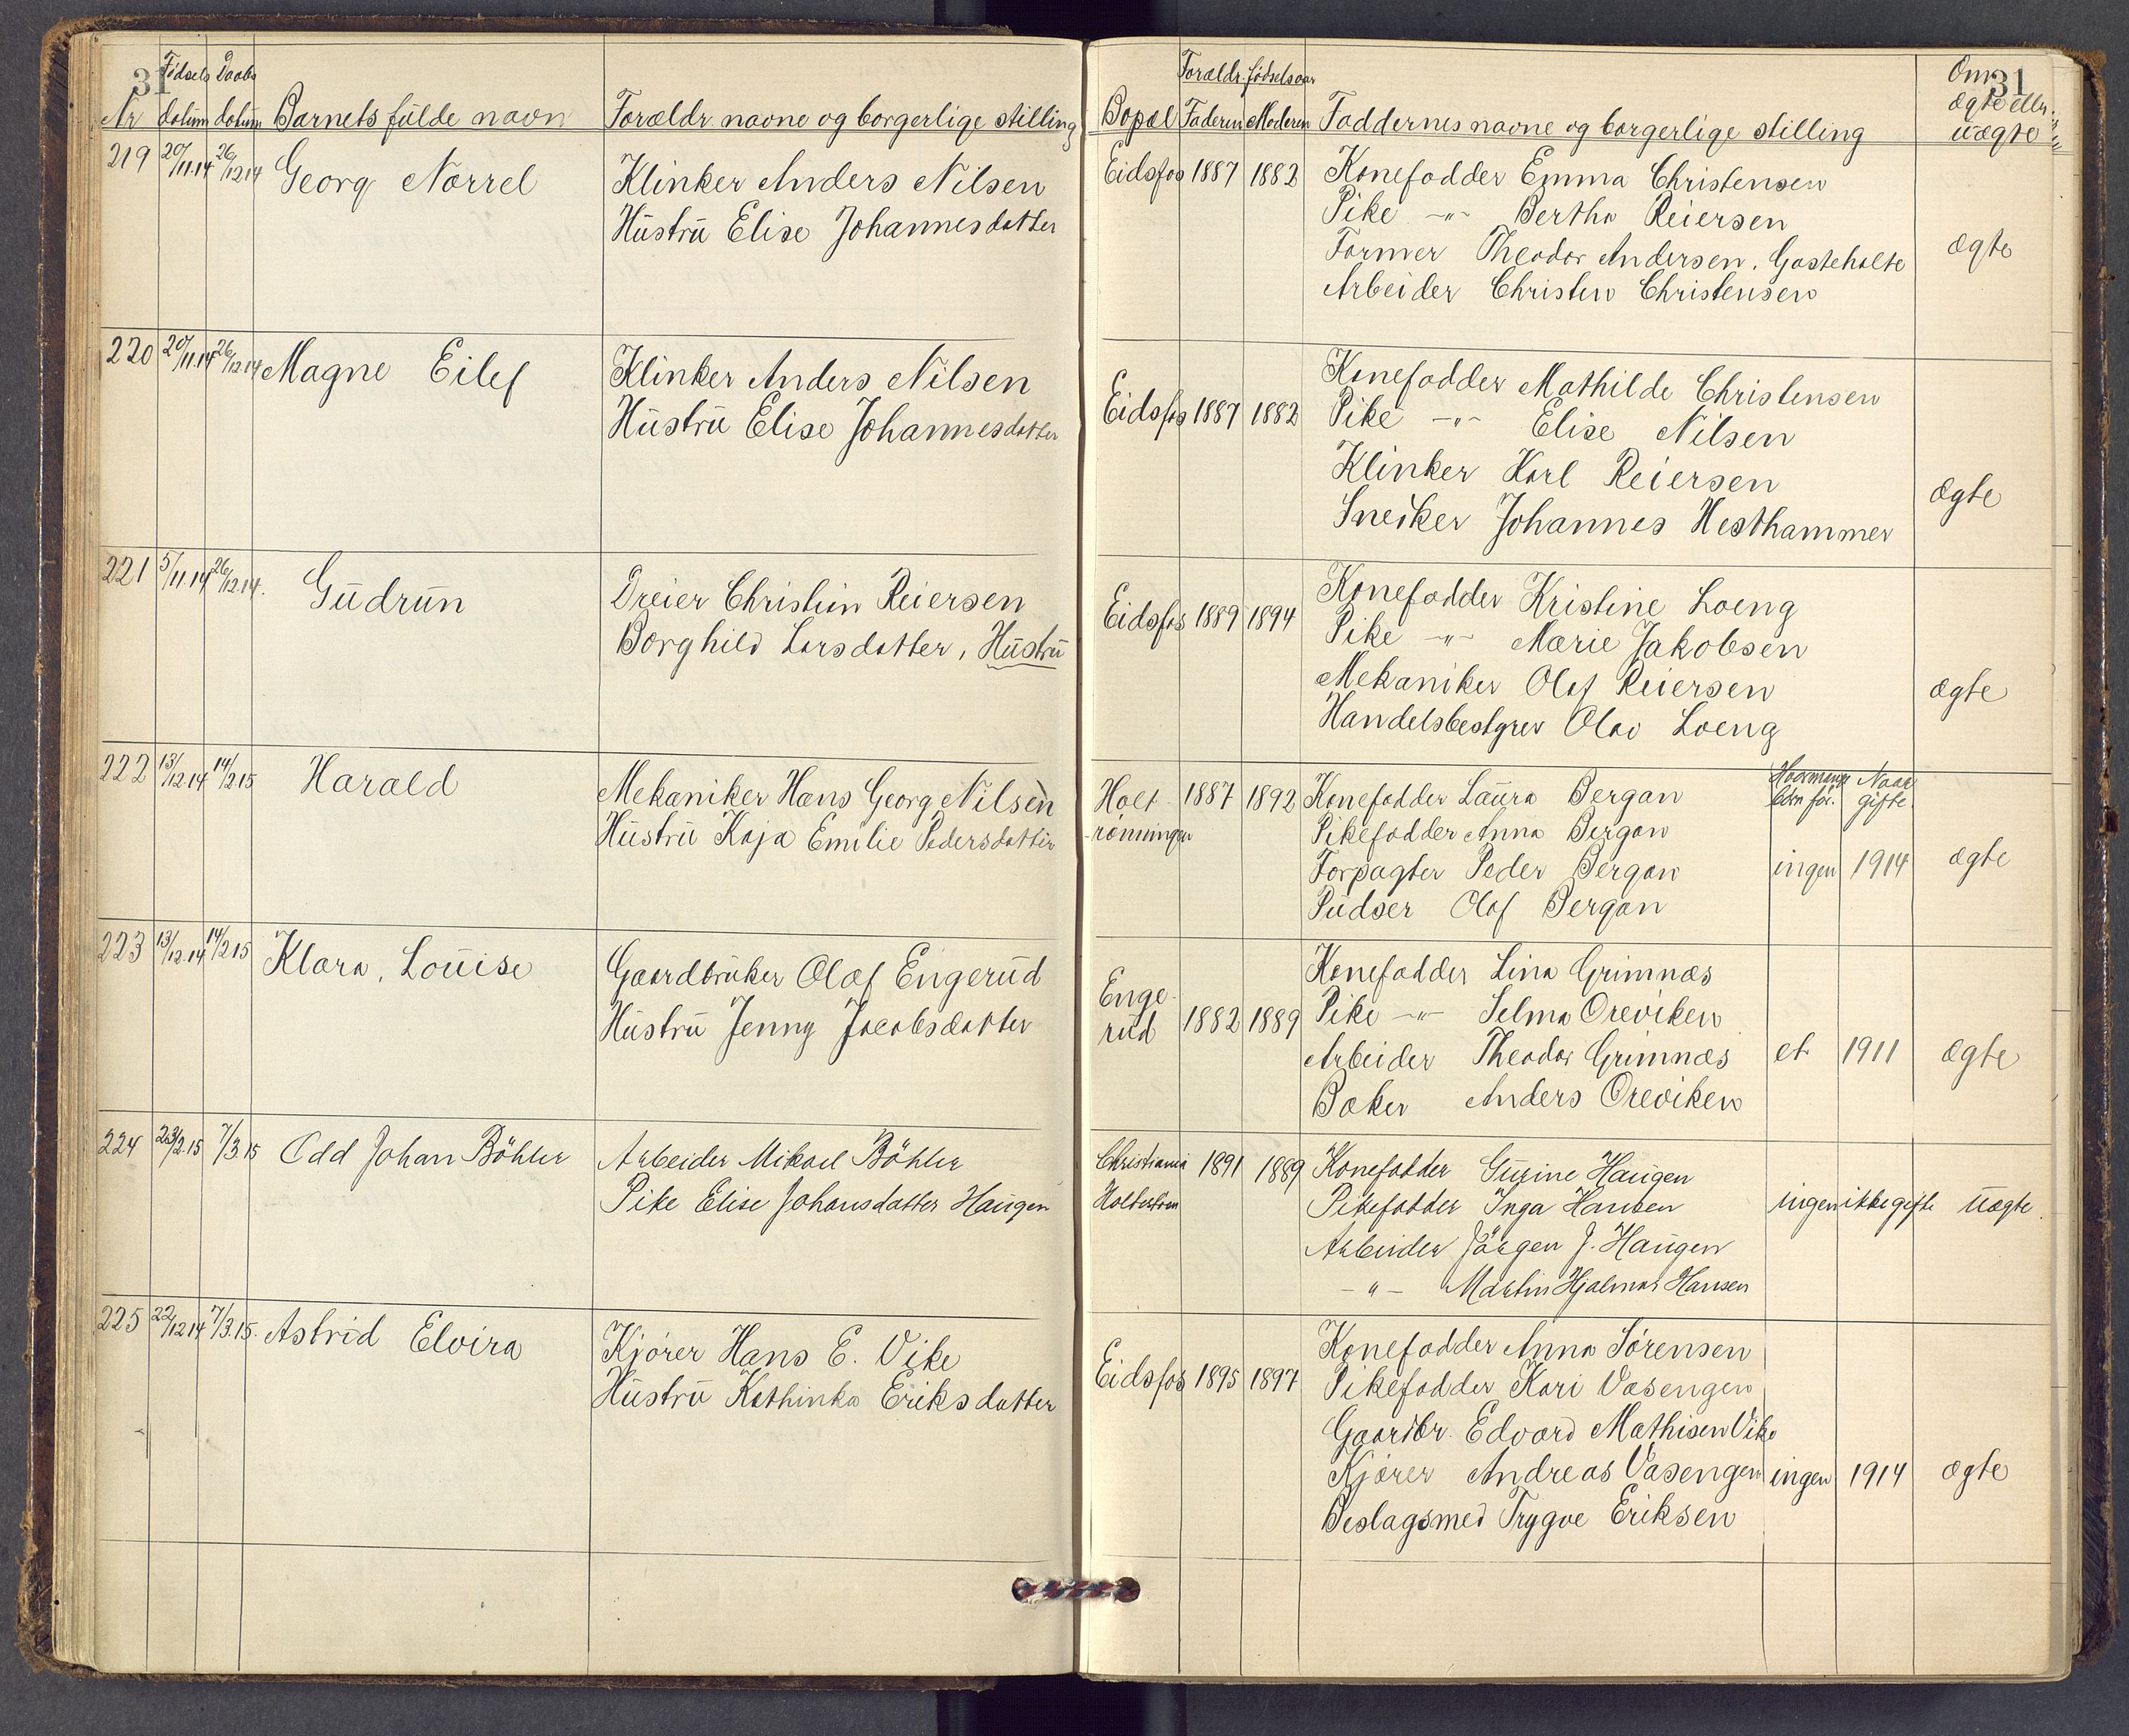 31 Fødsels Daabs
Nr datum datum Barnets fulde navn Forældr. navne og borgerlige stilling
Forældr. fødselsaar Om 31
Bopæl Faderen Moderen Faddernes navne og borgerlige stilling ægte eller
uægte
219 20/11.14 26/12.14 Georg Norrel Klinker Anders Nilsen Eidsfos 1887 1882 Konefadder Emma Christensen
Hustru Elise Johannesdatter Pike -"- Bertha Reiersen
Former Theodor Andersen, Gasteholte ægte
Arbeider Christen Christensen
220 20/11.14 26/12.14 Magne Eilef Klinker Anders Nilsen Konefadder Mathilde Christensen
Hustru Elise Johannesdatter Eidsfos 1887 1882 Pike -"- Elise Nilsen
Klinker Karl Reiersen
Sneiker Johannes Hesthammer ægte
221 5/11.14 26/12.14. Gudrun Dreier Christian Reiersen Eidsfos 1889 1894 Konefadder Kristine Loeng
Borghild Larsdatter, Hustru Pike -"- Marie Jakobsen
Mekaniker Olaf Reiersen ægte
Handelsbestyrer Olav Loeng
222 13/12.14 14/2.15 Harald Mekaniker Hans Georg Nilsen Holt- 1887 1892 Konefadder Laura Bergan Hvormange Naar
Hustru Kaja Emilie Pedersdatter rønningen Pikefadder Anna Bergan børn før. gifte
Forpagter Peder Bergan ingen 1914 ægte
Pudser Olaf Bergan
223 13/12.14 14/2 15 Klara, Louise Gaardbruker Olaf Engerud Enge- Konefadder Lina Grimnæs
Hustru Jenny Jacobsdatter rud 1882 1889 Pike -"- Selma Oreviken
Arbeider Theodor Grimnæs et 1911 ægte
Baker Anders Oreviken
224 23/2.15 7/3 15 Odd Johan Böhler Arbeider Mikael Böhler Christiania 1891 1889 Konefadder Gurine Haugen
Pike Elise Johansdatter Haugen Pikefadder Inga Hansen ingen ikke gifte uægte.
Arbeider Jörgen J. Haugen
-"- Martin Hjalmar Hansen
225 22/12 14 7/3.15. Astrid Elvira Kjører Hans E. Vike Eidsfos 1895 1897 Konefadder Anna Sørensen
Hustru Kathinka Eriksdatter Pikefadder Kari Vasengen
Gaardbr. Edvard Mathisen Vike
Kjører Andreas Vasengen ingen 1914 ægte
Beslagsmed Trygve Eriksen